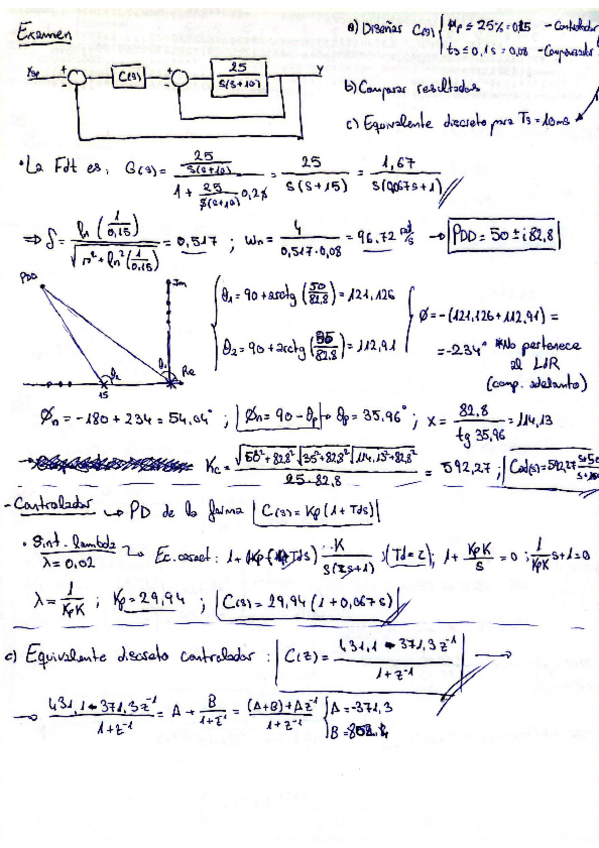 Examen
a) Diseñar C(s) { Mp ≤ 25% = 0,15 - Controlador
ts ≤ 0,1s = 0,08 - Compensador
Ysp + - C(s) + - 25 / s(s+10) Y
b) Comparar resultados
c) Equivalente discreto para Ts = 10ms
• La Fdt es, G(s) = (25 / s(s+10)) / (1 + 25 / s(s+10) 0,2s) = 25 / s(s+15) = 1,67 / s(0,067s+1)
⇒ δ = ln(1/0,15) / √(π² + ln²(1/0,15)) = 0,517 ; ωn = 4 / 0,517·0,08 = 96,72 rad/s → PDD = 50 ± i82,8
PDD Im
θ1 = 90 + arctg (50/82,8) = 121,126
θ2 = 90 + arctg (35/82,8) = 112,91
ϕ = -(121,126 + 112,91) =
= -234° *No pertenece
al LIR
(comp. adelanto)
15 θ2 θ1 Re
ϕn = -180 + 234 = 54,04° ; ϕn = 90 - θp → θp = 35,96° ; x = 82,8 / tg 35,96 = 114,13
Kc = √(50²+82,8²) √(35²+82,8²) √(114,13²+82,8²) / 25·82,8 = 592,27 ; Cad(s) = 592,27
- Controlador → PD de la forma C(s) = Kp(1 + Tds)
• Sint. lambda
λ = 0,02
→ Ec. caract: 1 + Kp(1 + Tds) K / s(τs+1) ; (Td = τ) ; 1 + KpK / s = 0 ; 1/KpK s + 1 = 0
λ = 1 / KpK ; Kp = 29,94 ; C(s) = 29,94 (1 + 0,067s)
c) Equivalente discreto controlador : C(z) = 431,1 - 371,3z⁻¹ / 1 + z⁻¹ →
→ 431,1 - 371,3z⁻¹ / 1 + z⁻¹ = A + B / 1 + z⁻¹ = (A+B) + Az⁻¹ / 1 + z⁻¹ { A = -371,3
B = 802,4